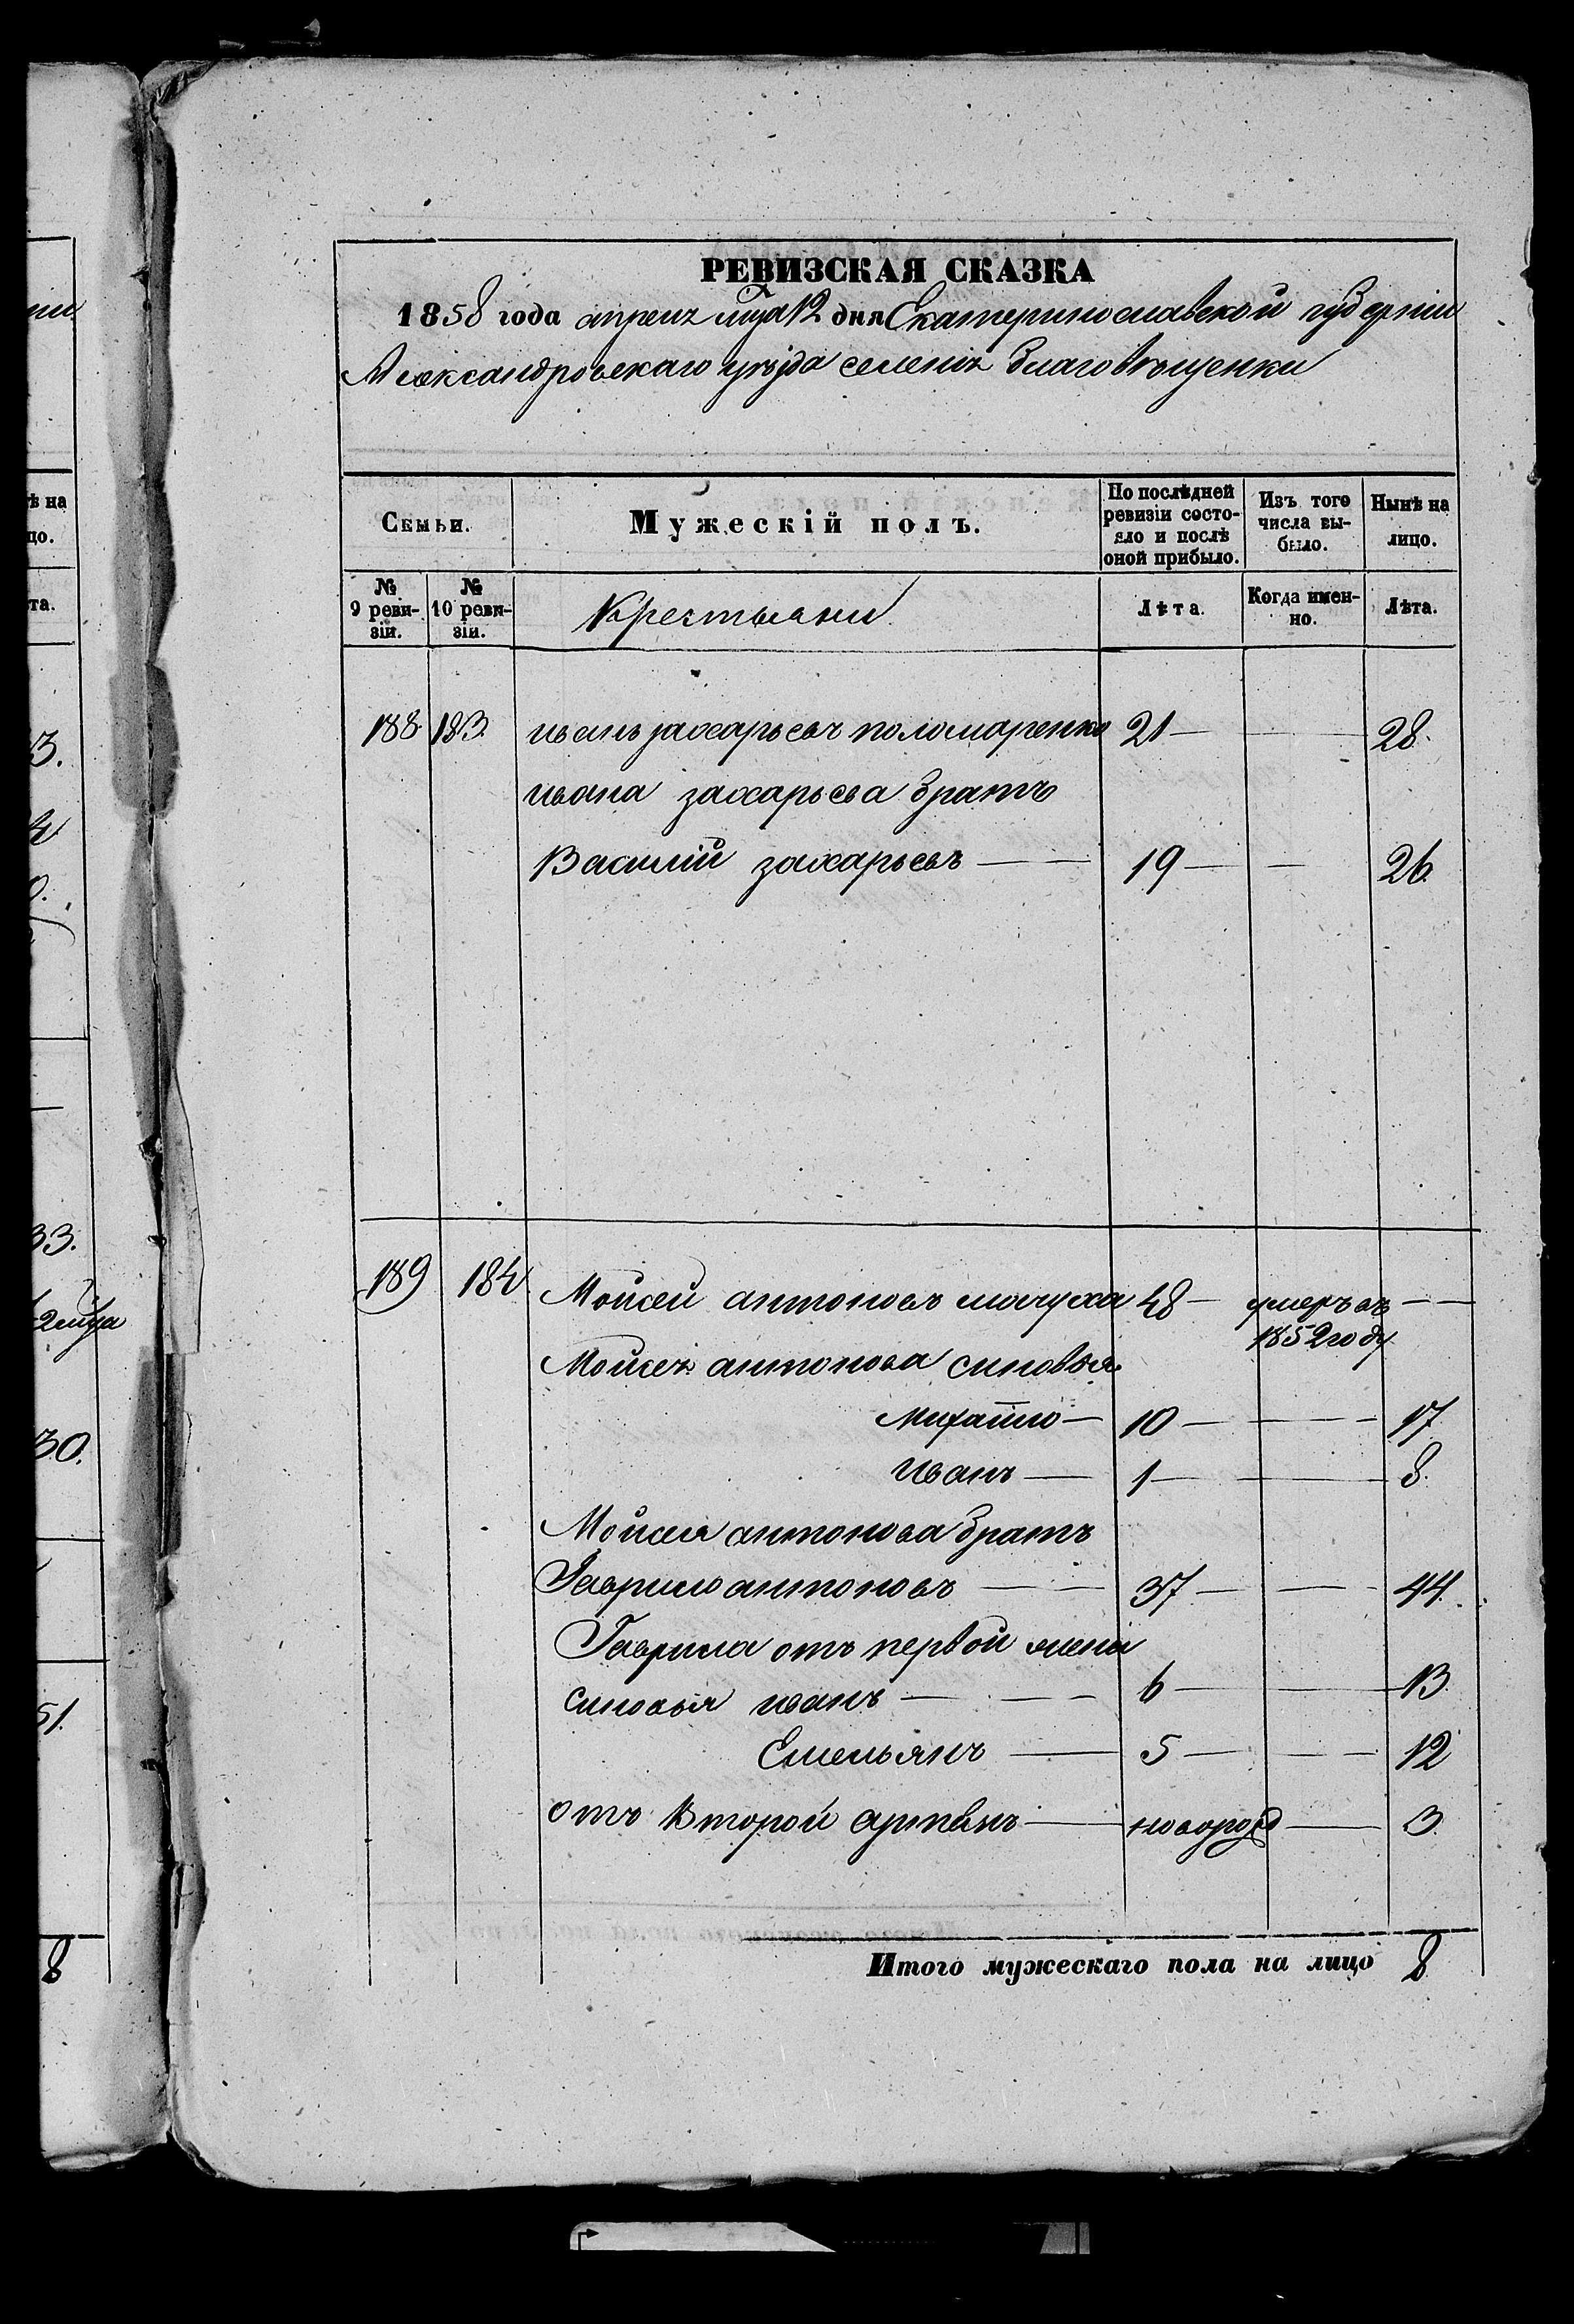 РЕВИЗСКАЯ СКАЗКА
1858 года апреля мца 12 дня Екатеринославской губернии
Александровскаго уѣзда селенія Благовѣщенки
Семьи.
Мужескій полъ.
По послѣдней ревизіи состояло и послѣ оной прибыло.
Изъ того числа выбыло.
Нынѣ на лицо.
№ 9 ревизіи.
№ 10 ревизіи.
Крестьяни
Лѣта.
Когда именно.
Лѣта.
188 183. иванъ захарьевъ поломаренко 21 — — 28.
ивана захарьева братъ
Василій захарьевъ — — 19 — — 26.
189 184 Мойсей антоновъ мачуха 48 — умеръ въ — —
1852 году
Мойсея антонова синовья
Михайло — 10 — — 17
Иванъ — 1 — — 8.
Мойсея антонова братъ
Гаврило антоновъ — — 37 — — 44.
Гаврила отъ первой жени
синовья иванъ — — 6 — — 13.
Емельянъ — 5 — — 12
отъ Второй артемъ — новорожд — 3.
Итого мужескаго пола на лицо 8
ѣ на
цо.
та.
3.
0.
33.
2 мца
30.
51.
8